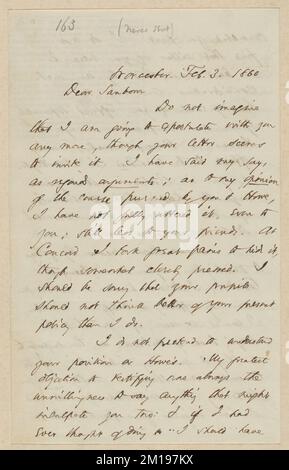 163
(Never Sent)
Worcester. Feb. 3. 1860
Dear Sanborn
Do not imagine
that I am going to expostulate with you
any more, though your letter seems
to invite it. I have said my say,
as regards arguments; as to my opinion
of the course pursued by you & Howe,
I have not fully uttered it, even to
you; still less to your friends. At
Concord I took great pains to hide it,
though somewhat closely pressed. I
should be sorry that your pupils
should not think better of your present
policy than I do.
I do not pretend to understand
your position or Howe's. My greatest
objection to testifying was always the
unwillingness to say anything that might
inculpate you two: & if I had
ever thought of doing so I should have
alamy
Image ID: 2M197KX
www.alamy.com